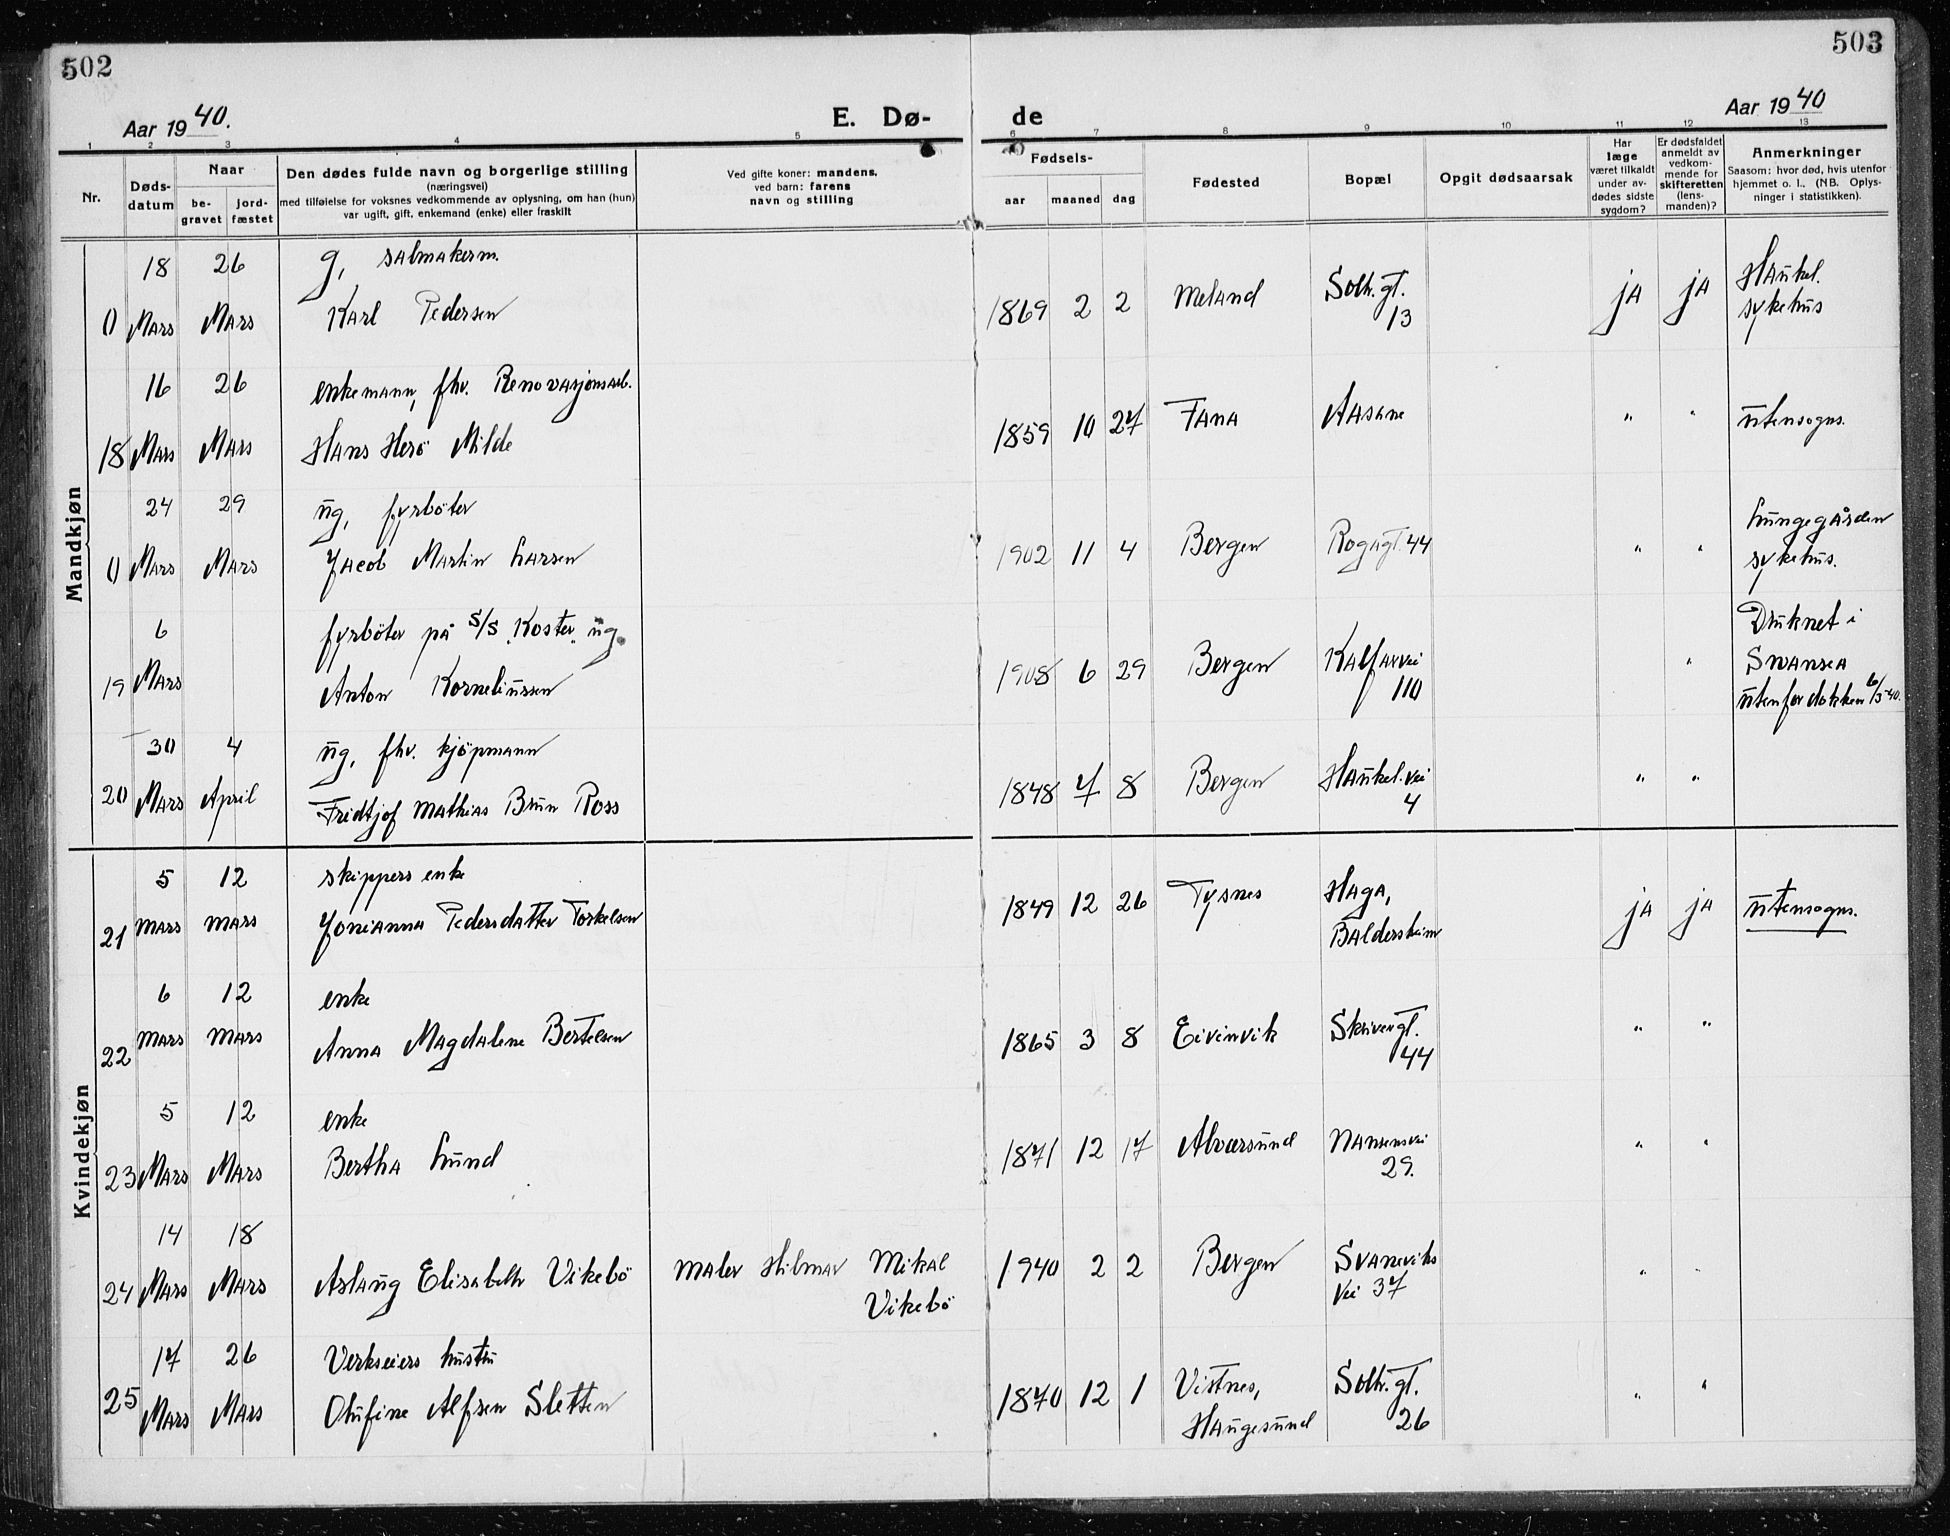 502
503
Aar 1940.
E. Dø-
de
Aar 1940
1 2 3 4 5 6 7 8 9 10 11 12 13
Nr.
Døds-
datum
Naar
be-
gravet
jord-
fæstet
Den dødes fulde navn og borgerlige stilling
(næringsvei)
med tilføielse for voksnes vedkommende av oplysning, om han (hun)
var ugift, gift, enkemand (enke) eller fraskilt
Ved gifte koner: mandens,
ved barn: farens
navn og stilling
Fødsels-
aar maaned dag
Fødested
Bopæl
Opgit dødsaarsak
Har
læge
været tilkaldt
under av-
dødes sidste
sygdom?
Er dødsfaldet
anmeldt av
vedkom-
mende for
skifteretten
(lens-
manden)?
Anmerkninger
Saasom: hvor død, hvis utenfor
hjemmet o. l.. (NB. Oplys-
ninger i statistikken).
Mandkjøn
18 26 g, salmakerm.
0 Mars Mars Karl Pedersen 1869 2 2 Meland Solh.gt. 13 ja ja Haukel. sykehus
16 26 enkemann, fhv. Renovasjonsarb.
18 Mars Mars Hans Herö Milde 1859 10 27 Fana Aasane " " utensogns.
24 29 ug, fyrböter
0 Mars Mars Jacob Martin Larsen 1902 11 4 Bergen Rogagt. 44 " " Lungegården sykehus.
6 fyrböter på S/S "Koster" ug.
19 Mars Anton Korneliussen 1908 6 29 Bergen Kalfarvei 110 " Druknet i Swansea utenfor dokken 6/3-40.
30 4 ug, fhv. kjöpmann
20 Mars April Fridtjof Mathias Brun Ross 1848 7 8 Bergen Haukel.vei 4 " "
Kvindekjøn
5 12 skippers enke
21 Mars Mars Jonianna Pedersdatter Torkelsen 1849 12 26 Tysnes Haga, Baldersheim ja ja utensogns.
6 12 enke
22 Mars Mars Anna Magdalene Bertelsen 1865 3 8 Eivinvik Skivergt. 44 " "
5 12 enke
23 Mars Mars Bertha Lund 1871 12 17 Alversund Nansensvei 29. " "
14 18
24 Mars Mars Aslaug Elisabeth Vikebö maler Hilmar Mikal Vikebö 1940 2 2 Bergen Svaneviks vei 37 " "
17 26 Verkseiers hustru
25 Mars Mars Olufine Alfsen Sletten 1870 12 1 Vistnes, Haugesund Solh.gt. 26 " "